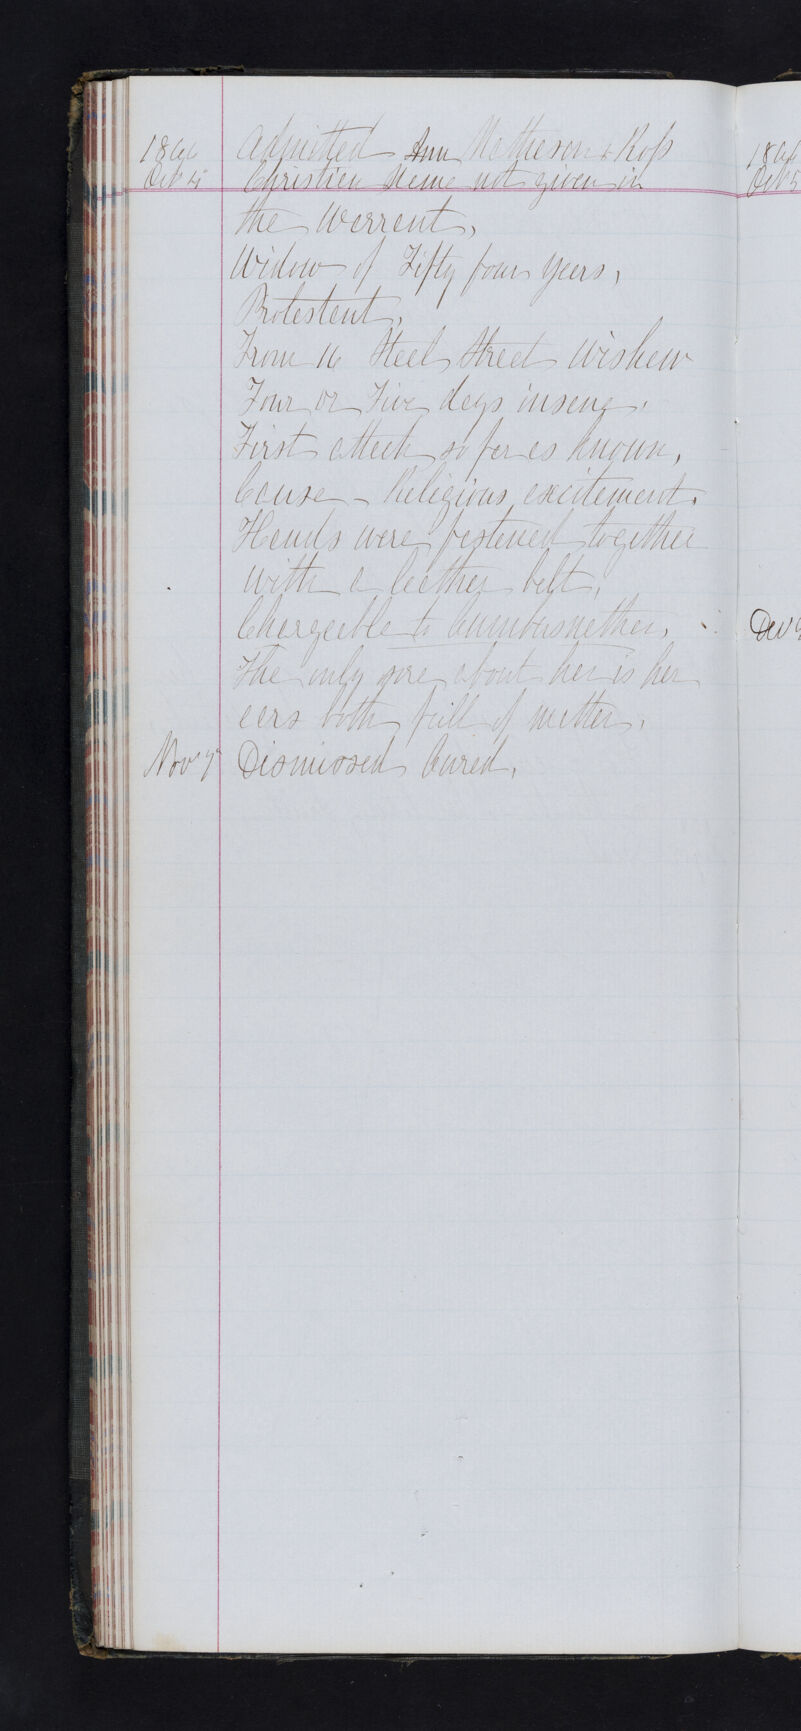 1866 Admitted Ann Matheson or Ross
Oct 5 Christian Name not given in
the Warrant,
Widow of Fifty four years,
Protestant,
From 16 Steel Street Wishaw
Four or Five days insane,
First attack so far as known,
Cause - Religious excitement.
Hands were fastened together
with a leather belt,
Chargeable to Cambusnethan,
The only sore about her is her
ears both full of matter,
Nov 7 Dismissed Cured,
1866
Oct 5
Dec